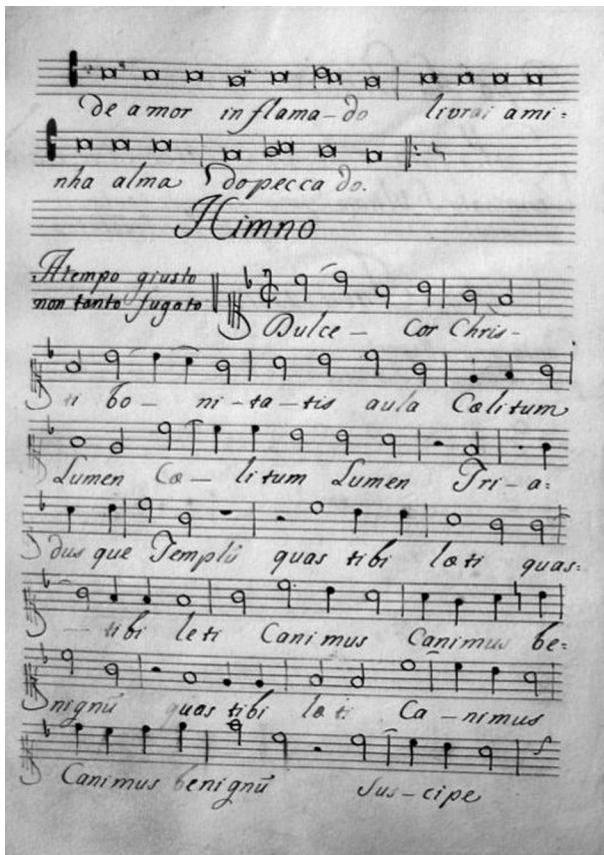 De amor inflama-do livrai ami:
nha alma do pecca do.
Himno
Atempo giusto
non tanto fugato
Dulce - Cor Chris-
ti bo - ni - ta - tis aula Cœlitum
Lumen Cœ - litum Lumen Tri - a:
dus que Templũ quas tibi lœti quas:
- tibi leti Canimus Canimus be=
nignũ quas tibi lœti Ca - nimus
Canimus benignũ Sus - cipe